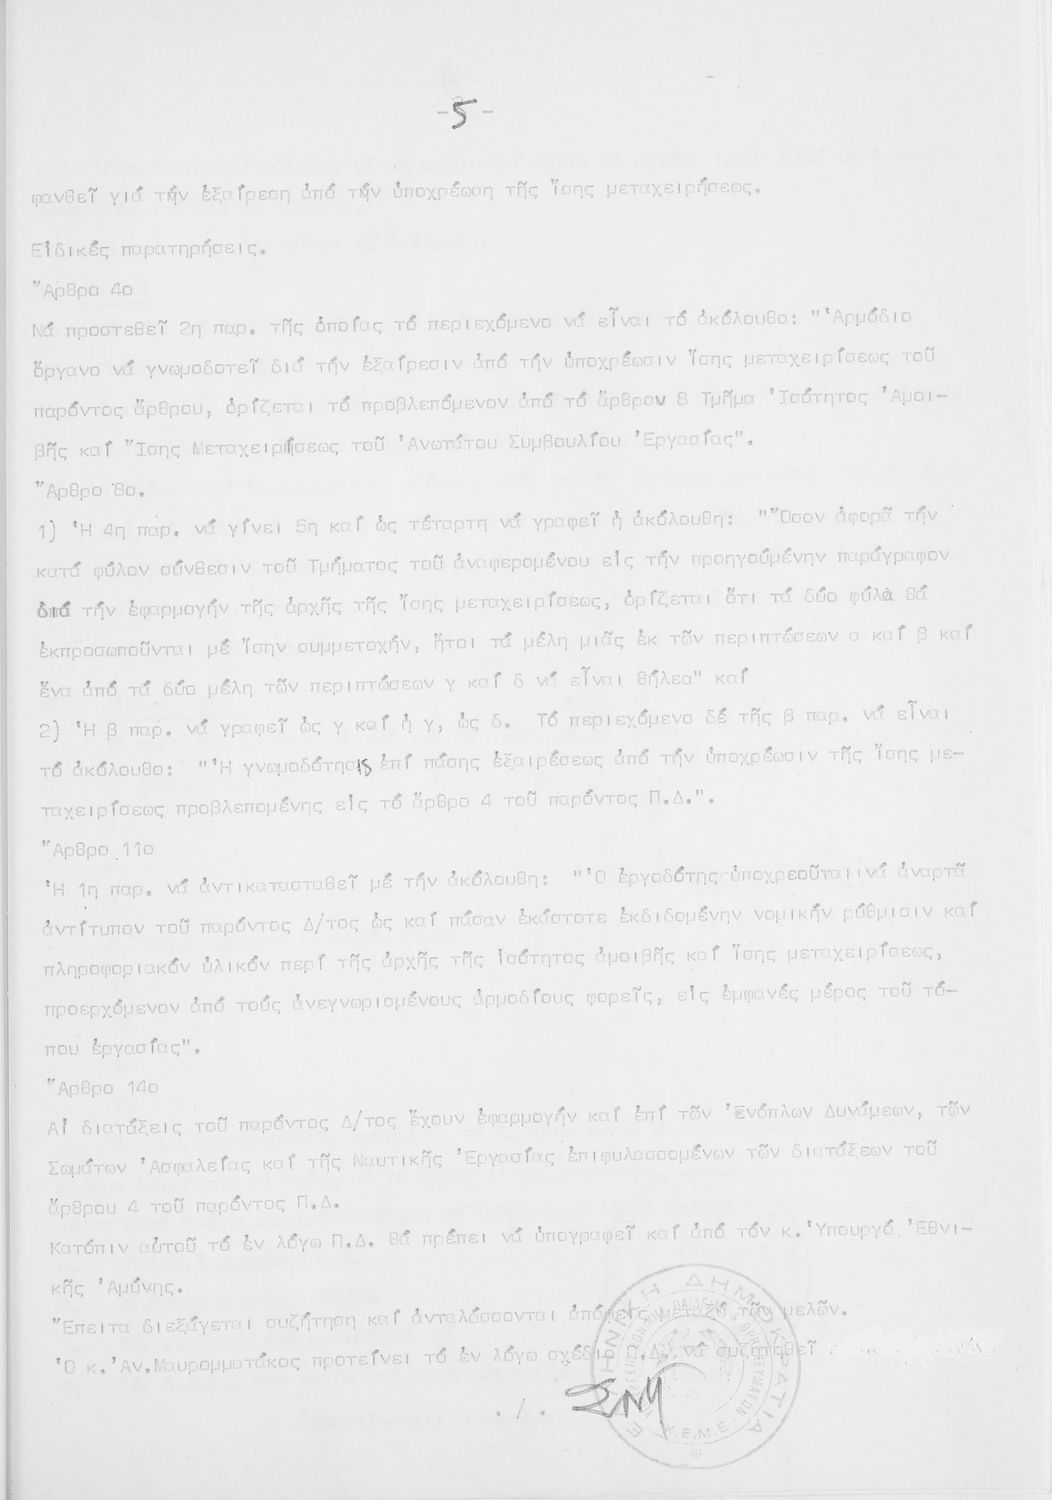 -5-
φανθεῖ γιά τήν ἐξαίρεση ἀπό τήν ὑποχρέωση τῆς ἴσης μεταχειρήσεως.
Εἰδικές παρατηρήσεις.
Ἄρθρο 4ο
Νά προστεθεῖ 2η παρ. τῆς ὁποίας τό περιεχόμενο νά εἶναι τό ἀκόλουθο: "Ἁρμόδιο
ὄργανο νά γνωμοδοτεῖ διά τήν ἐξαίρεσιν ἀπό τήν ὑποχρέωσιν ἴσης μεταχειρίσεως τοῦ
παρόντος ἄρθρου, ὁρίζεται τό προβλεπόμενον ἀπό τό ἄρθρον 8 Τμῆμα Ἰσότητος Ἀμοι-
βῆς καί Ἴσης Μεταχειρίσεως τοῦ Ἀνωτάτου Συμβουλίου Ἐργασίας".
Ἄρθρο 8ο.
1) Ἡ 4η παρ. νά γίνει 5η καί ὡς τέταρτη νά γραφεῖ ἡ ἀκόλουθη: "Ὅσον ἀφορᾶ τήν
κατά φύλον σύνθεσιν τοῦ Τμήματος τοῦ ἀναφερομένου εἰς τήν προηγούμένην παράγραφον
ὑπό τήν ἐφαρμογήν τῆς ἀρχῆς τῆς ἴσης μεταχειρίσεως, ὁρίζεται ὅτι τά δύο φύλα θά
ἐκπροσωποῦνται μέ ἴσην συμμετοχήν, ἤτοι τά μέλη μιᾶς ἐκ τῶν περιπτώσεων α καί β καί
ἕνα ἀπό τά δύο μέλη τῶν περιπτώσεων γ καί δ νά εἶναι θήλεα" καί
2) Ἡ β παρ. νά γραφεῖ ὡς γ καί ἡ γ, ὡς δ. Τό περιεχόμενο δέ τῆς β παρ. νά εἶναι
τό ἀκόλουθο: "Ἡ γνωμοδότησις ἐπί πάσης ἐξαιρέσεως ἀπό τήν ὑποχρέωσιν τῆς ἴσης με-
ταχειρίσεως προβλεπομένης εἰς τό ἄρθρο 4 τοῦ παρόντος Π.Δ.".
Ἄρθρο 11ο
Ἡ 1η παρ. νά ἀντικατασταθεῖ μέ τήν ἀκόλουθη: "Ὁ ἐργοδότης ὑποχρεοῦται νά ἀναρτᾶ
ἀντίτυπον τοῦ παρόντος Δ/τος ὡς καί πάσαν ἑκάστοτε ἐκδιδομένην νομικήν ρύθμισιν καί
πληροφοριακόν ὑλικόν περί τῆς ἀρχῆς τῆς ἰσότητος ἀμοιβῆς καί ἴσης μεταχειρίσεως,
προερχόμενον ἀπό τούς ἀνεγνωρισμένους ἁρμοδίους φορεῖς, εἰς ἐμφανές μέρος τοῦ τό-
που ἐργασίας".
Ἄρθρο 14ο
Αἱ διατάξεις τοῦ παρόντος Δ/τος ἔχουν ἐφαρμογήν καί ἐπί τῶν Ἐνόπλων Δυνάμεων, τῶν
Σωμάτων Ἀσφαλείας καί τῆς Ναυτικῆς Ἐργασίας ἐπιφυλασσομένων τῶν διατάξεων τοῦ
ἄρθρου 4 τοῦ παρόντος Π.Δ.
Κατόπιν αὐτοῦ τό ἐν λόγω Π.Δ. θά πρέπει νά ὑπογραφεῖ καί ἀπό τόν κ. Ὑπουργό Ἐθνι-
κῆς Ἀμύνης.
Ἔπειτα διεξάγεται συζήτηση καί ἀνταλάσσονται ἀπόψεις μεταξύ τῶν μελῶν.
Ὁ κ. Ἀν.Μαυρομματάκος προτείνει τό ἐν λόγω σχέδιο Π.Δ. νά συζητηθεῖ
. / .
ΕΛΛΗΝΙΚΗ ΔΗΜΟΚΡΑΤΙΑ
Κ.Ε.Μ.Ε.